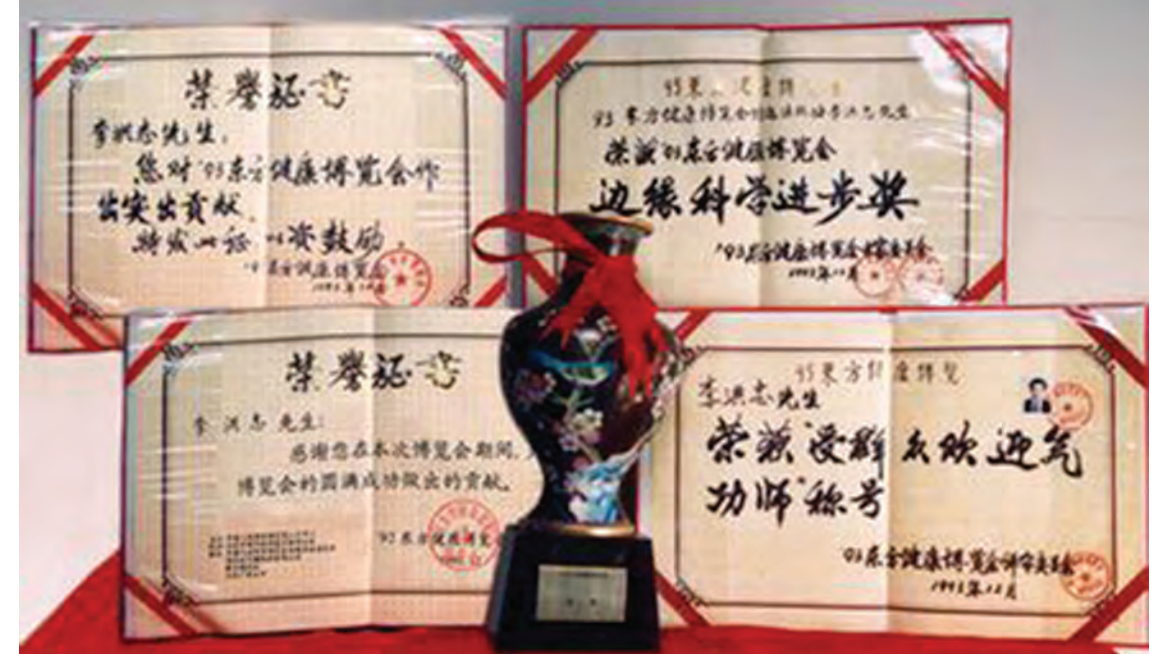 荣誉证书
李洪志先生:
您对'93东方健康博览会作
出突出贡献。
特发此证 以资鼓励。
'93东方健康博览会
1993年12月
'93东方健康博览会
荣获'93东方健康博览会
边缘科学进步奖
'93东方健康博览会
1993年12月
荣誉证书
李洪志先生:
感谢您在本次博览会期间,
博览会的圆满成功做出的贡献。
东方健康博览会
93東方健康博览
李洪志先生
荣获“受群众欢迎气
功师”称号
'93东方健康博览会评审委员会
1993年12月